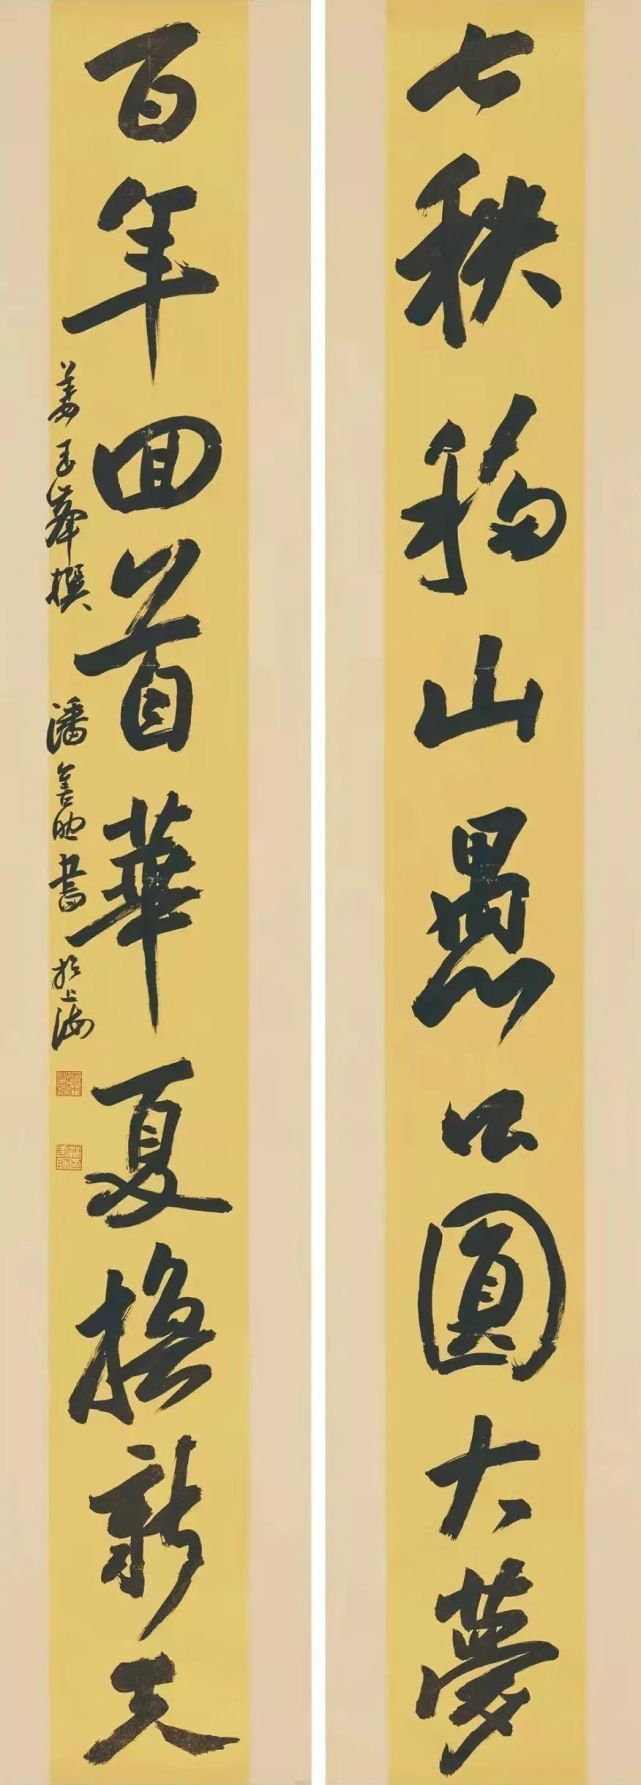 七秩移山愚公圓大夢
百年回首華夏換新天
姜玉峯撰 潘善助書於上海